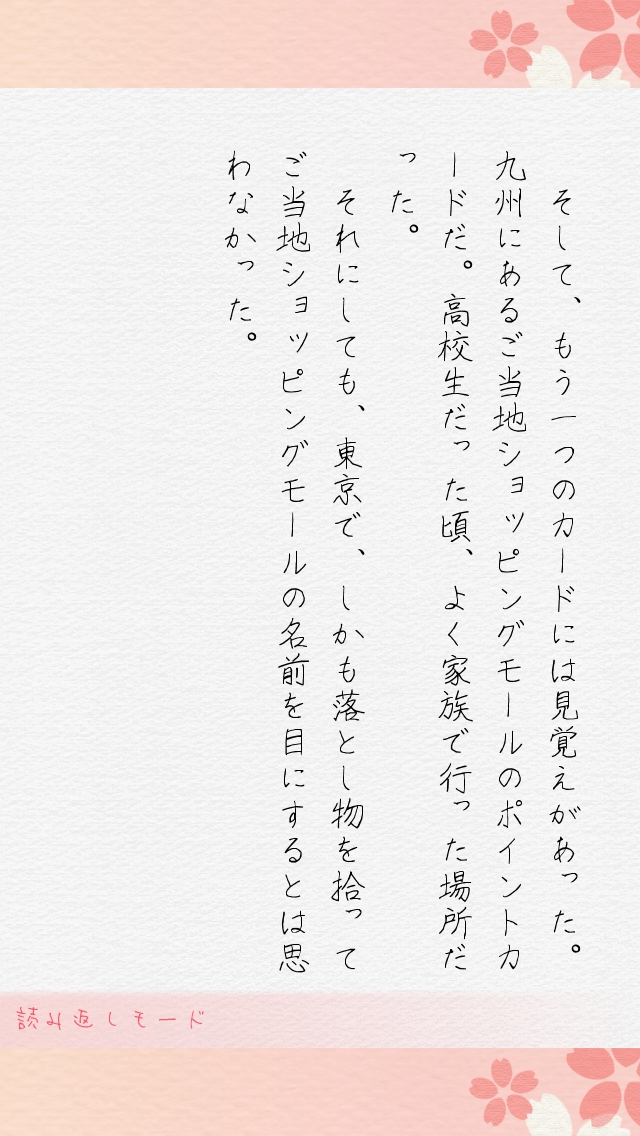 そして、もう一つのカードには見覚えがあった。
九州にあるご当地ショッピングモールのポイントカ
ードだ。高校生だった頃、よく家族で行った場所だ
った。
それにしても、東京で、しかも落とし物を拾って
ご当地ショッピングモールの名前を目にするとは思
わなかった。
読み返しモード